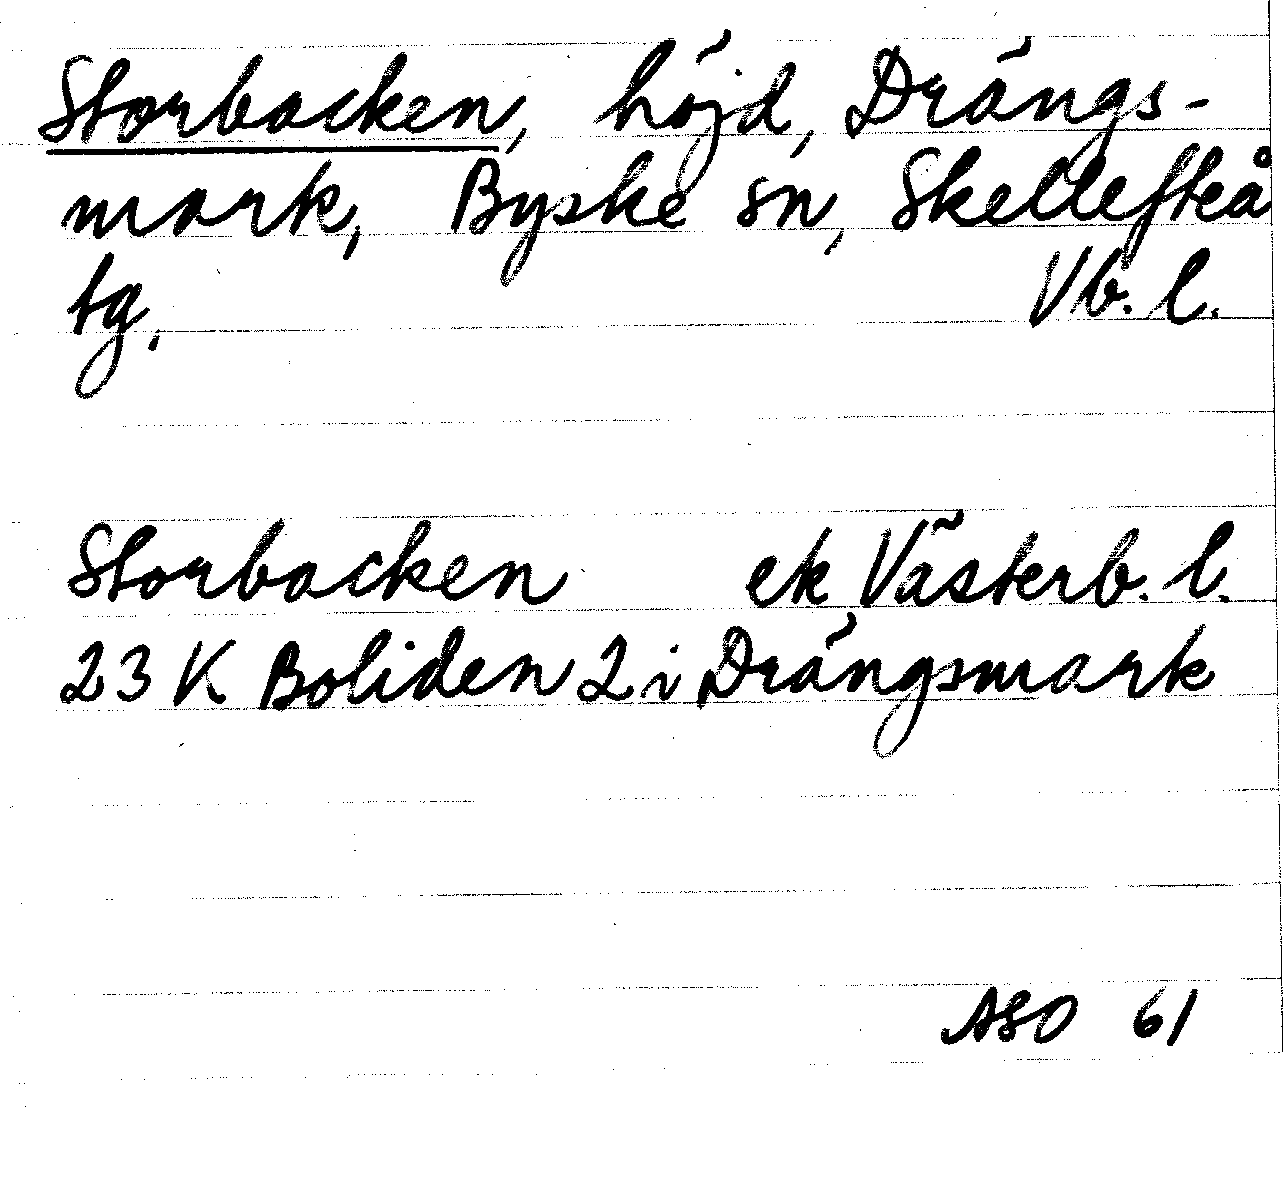 Storbacken, höjd, Drängs-
mark, Byske sn, Skellefteå
tg. Vb. l.
Storbacken ek Västerb. l.
23 K Boliden 2 i Drängsmark
ASO 61